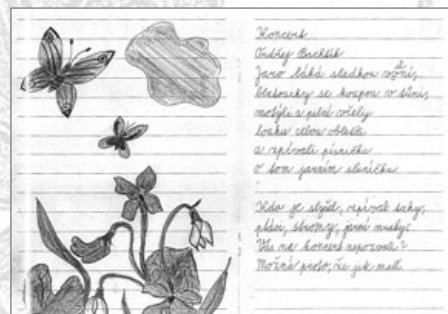 Koncert
Ondřej Bachtík
Jaro láká sladkou vůní,
bleťoucky se koupou v tůni,
motýli a pilné včely
louku celou obletěli
a zpívali písničku
o tom jarním sluníčku.
Kdo je slyšel, zpíval taky,
ptáci, stromy, jarní mraky.
Vás na koncert nepozvali?
Možná proto, že jste malí.